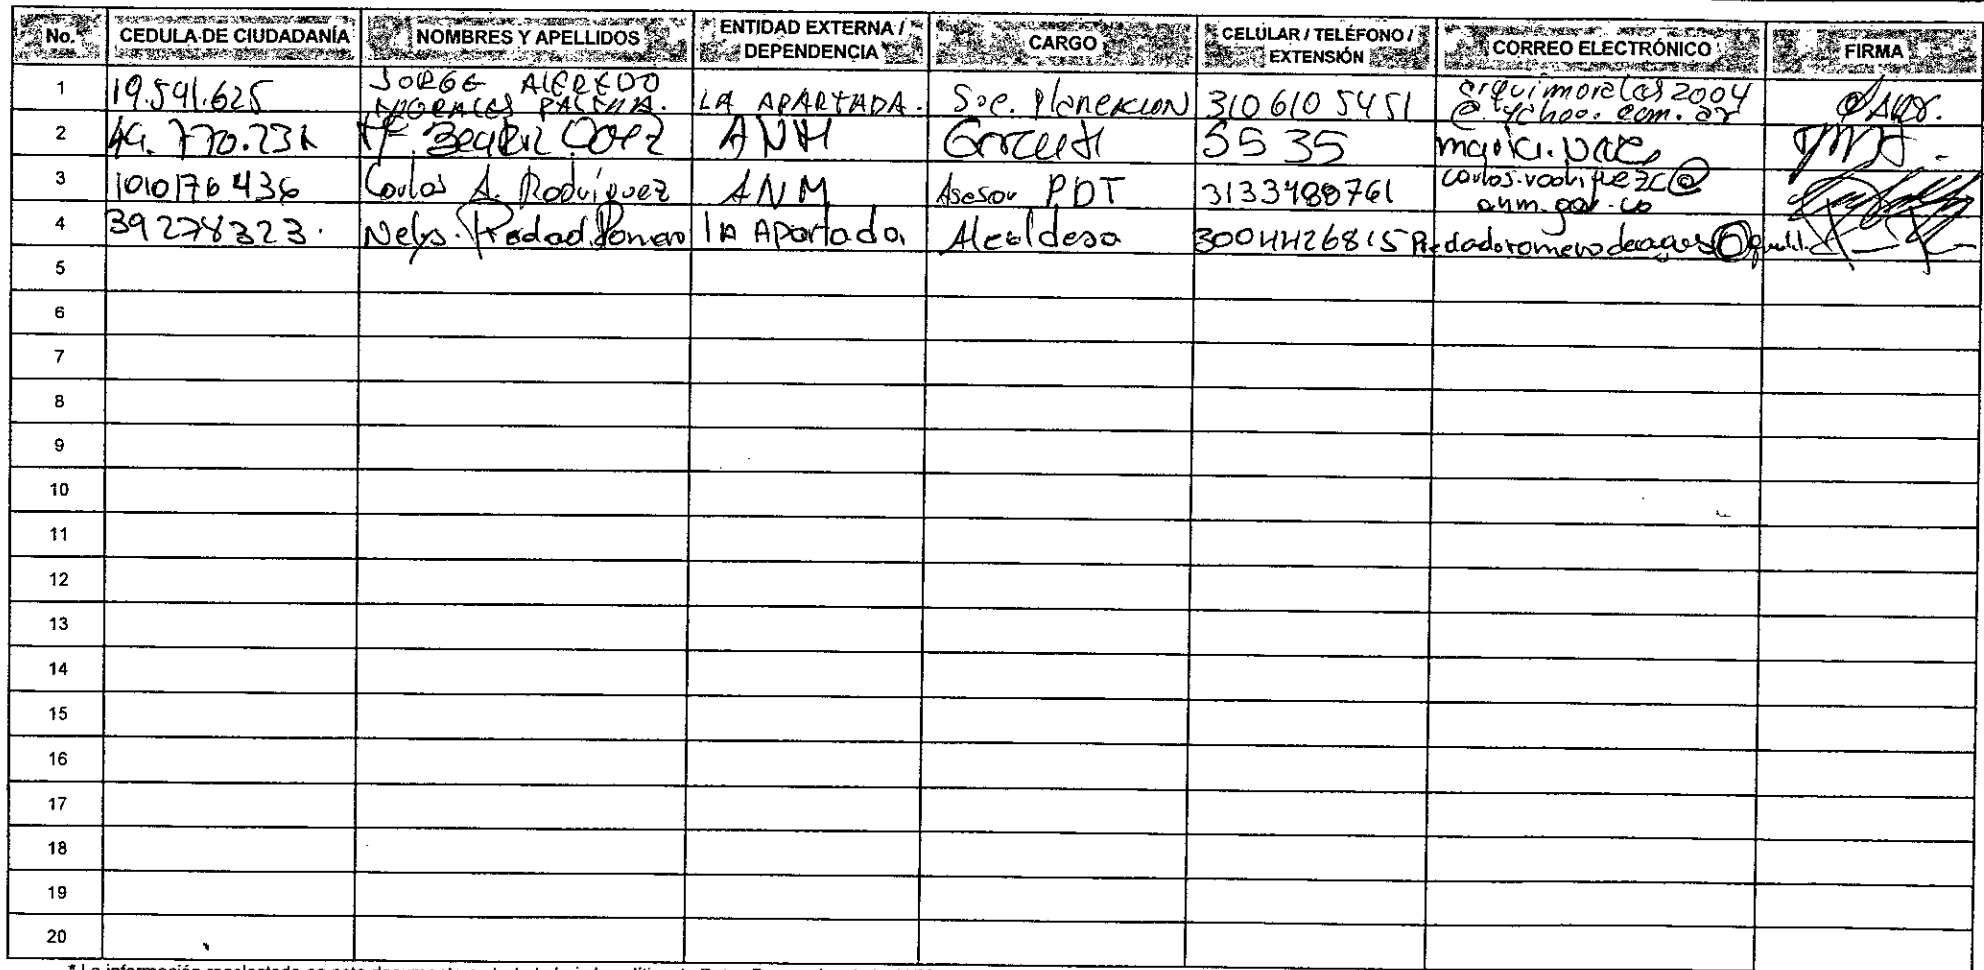 No. CEDULA DE CIUDADANÍA NOMBRES Y APELLIDOS ENTIDAD EXTERNA / DEPENDENCIA CARGO CELULAR / TELÉFONO / EXTENSIÓN CORREO ELECTRÓNICO FIRMA
1 19.591.625 JORGE ALFREDO MORALES PALENCIA. LA APARTADA. Sec. Planeacion 310 610 5451 arquimorales2004 @yahoo.com.ar
2 M. Beatriz ANM 5535
3 1010176436 Carlos A. Rodriguez ANM Asesor PDT 3133488761 carlos.rodriguezc@ anm.gov.co
4 39278323. Nelys. Piedad Romero la Apartada Alcaldesa 3004426815
5
6
7
8
9
10
11
12
13
14
15
16
17
18
19
20
* La información